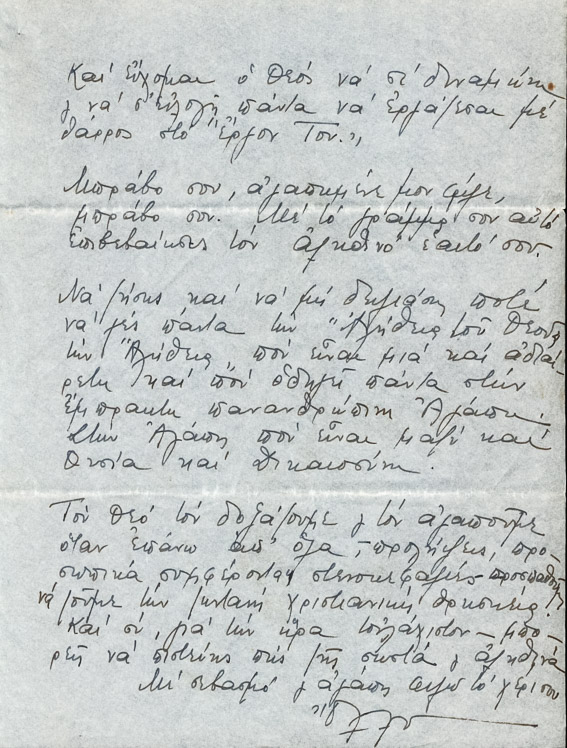 Καί εὔχομαι ὁ Θεός νά σέ δυναμώνη
& νά σ' εὐλογῆ πάντα νά ἐργάζεσαι μέ
θάρρος στό Ἔργον Του.,,
Μπράβο σου, ἀγαπημένε μου φίλε,
μπράβο σου. Μέ τό γράμμα σου αὐτό
ἐπιβεβαίωσες τόν ἀληθινό ἑαυτό σου.
Νά ζήσης καί νά μή δειλιάση ποτέ
νά λές πάντα τήν "Ἀλήθεια τοῦ Θεοῦ,,
τήν "Ἀλήθεια,, πού εἶναι μιά καί ἀδιαί-
ρετη καί πού ὁδηγῆ πάντα στήν
ἔμπρακτη πανανθρώπινη Ἀγάπη.
Στήν Ἀγάπη πού εἶναι μαζί καί
Θυσία καί Δικαιοσύνη.
Τόν Θεό τόν δοξάζουμε & τόν ἀγαποῦμε
ὅταν ἐπάνω ἀπ' ὅλα, προλήψεις, προ-
σωπικά συμφέροντα & στενοκεφαλιές προσπαθοῦμε
νά ζοῦμε τήν ζωντανή χριστιανική θρησκεία!
Καί σύ, γιά τήν ὥρα τοὐλάχιστον – μπο-
ρεῖς νά πιστεύης πώς ζῆς σωστά & ἀληθινά
Μέ σεβασμό & ἀγάπη φιλῶ τό χέρι σου